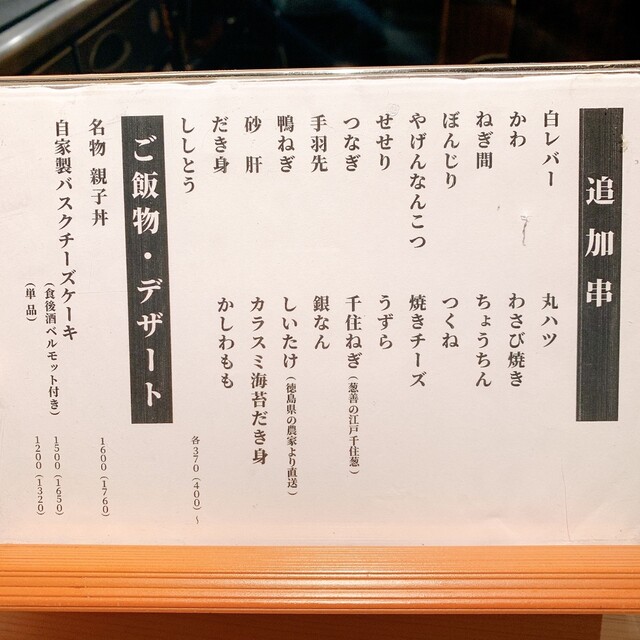 追加串
白レバー
かわ
ねぎ間
ぼんじり
やげんなんこつ
せせり
つなぎ
手羽先
鴨ねぎ
砂肝
だき身
ししとう
丸ハツ
わさび焼き
ちょうちん
つくね
焼きチーズ
うずら
千住ねぎ（葱善の江戸千住葱）
銀なん
しいたけ（徳島県の農家より直送）
カラスミ海苔だき身
かしわもも
各370（400）～
ご飯物・デザート
名物 親子丼 1600（1760）
自家製バスクチーズケーキ
（食後酒ベルモット付き） 1500（1650）
（単品） 1200（1320）